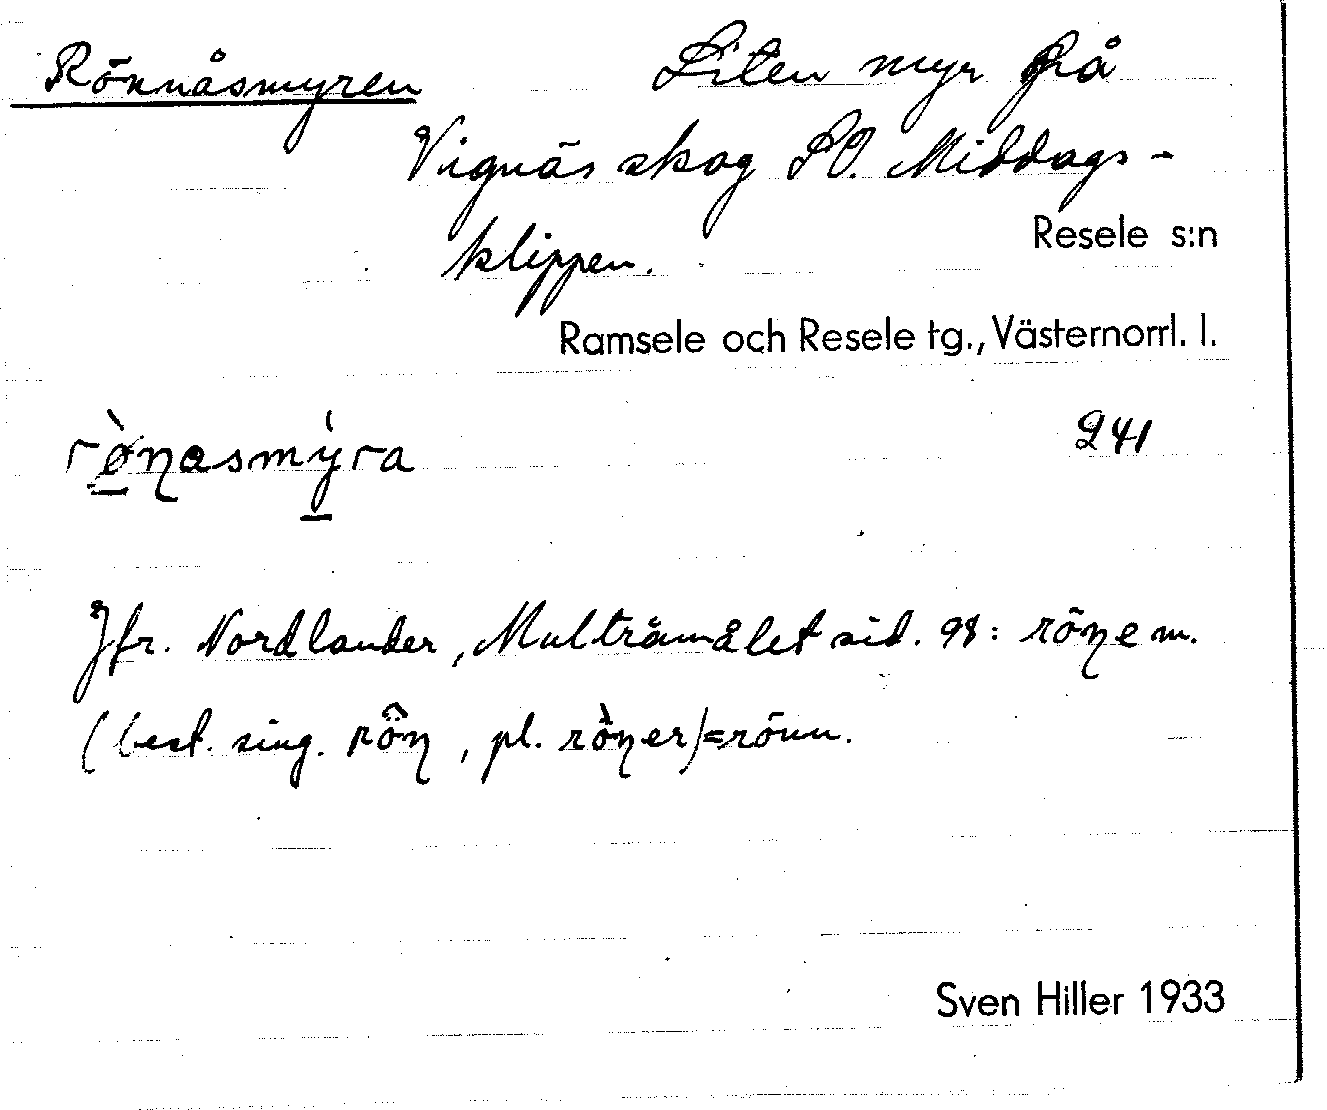 Rönnåsmyren Liten myr på
Vignäs skog SO. Middags-
klippen.
Resele s:n
Ramsele och Resele tg., Västernorrl. l.
rø̀ŋasmýra 241
Jfr. Nordlander, Multråmålet sid. 98: röŋe m.
(best. sing. rôŋ, pl. rö̀ŋer) = rönn.
Sven Hiller 1933